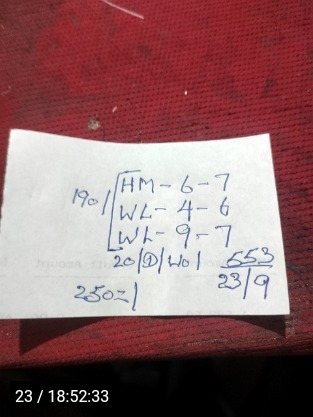 190/ HM - 6 - 7
WL - 4 - 6
WL - 9 - 7
20/D/W01 653
23/9
250=/
23 / 18:52:33